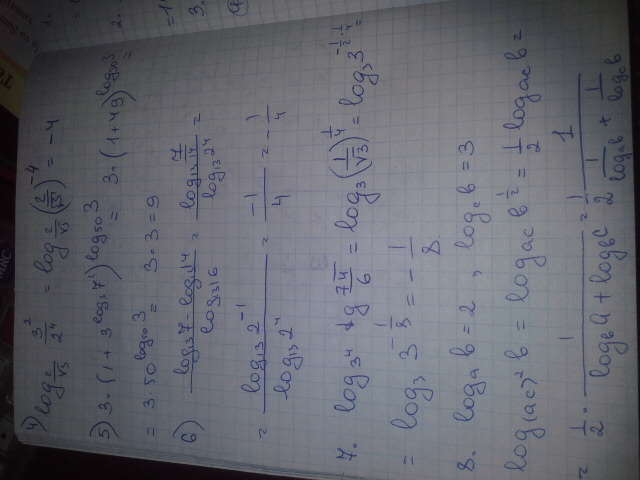 4) log_{2/√5} 3²/2⁴ = log_{2/√5} (2/√5)^{-4} = -4
5) 3·(1+3^{log_3 7²})^{log_{50} 3} = 3·(1+49)^{log_{50} 3} =
= 3·50^{log_{50} 3} = 3·3=9
6) (log_{13} 7 - log_{13} 14)/(log_{13} 16) = (log_{13} 7/14)/(log_{13} 2⁴) =
= (log_{13} 2^{-1})/(log_{13} 2⁴) = -1/4 = -1/4
= log_3 (1/√3)^{1/4} = log_3 3^{-1/2·1/4} =
= log_3 3^{-1/8} = -1/8
8. log_a b=2, log_c b=3
log_{(ac)²} b = log_{ac} b^{1/2} = 1/2 log_{ac} b =
= 1/2 · 1/(log_b a + log_b c) = 1/2 · 1/(1/(log_a b) + 1/(log_c b))